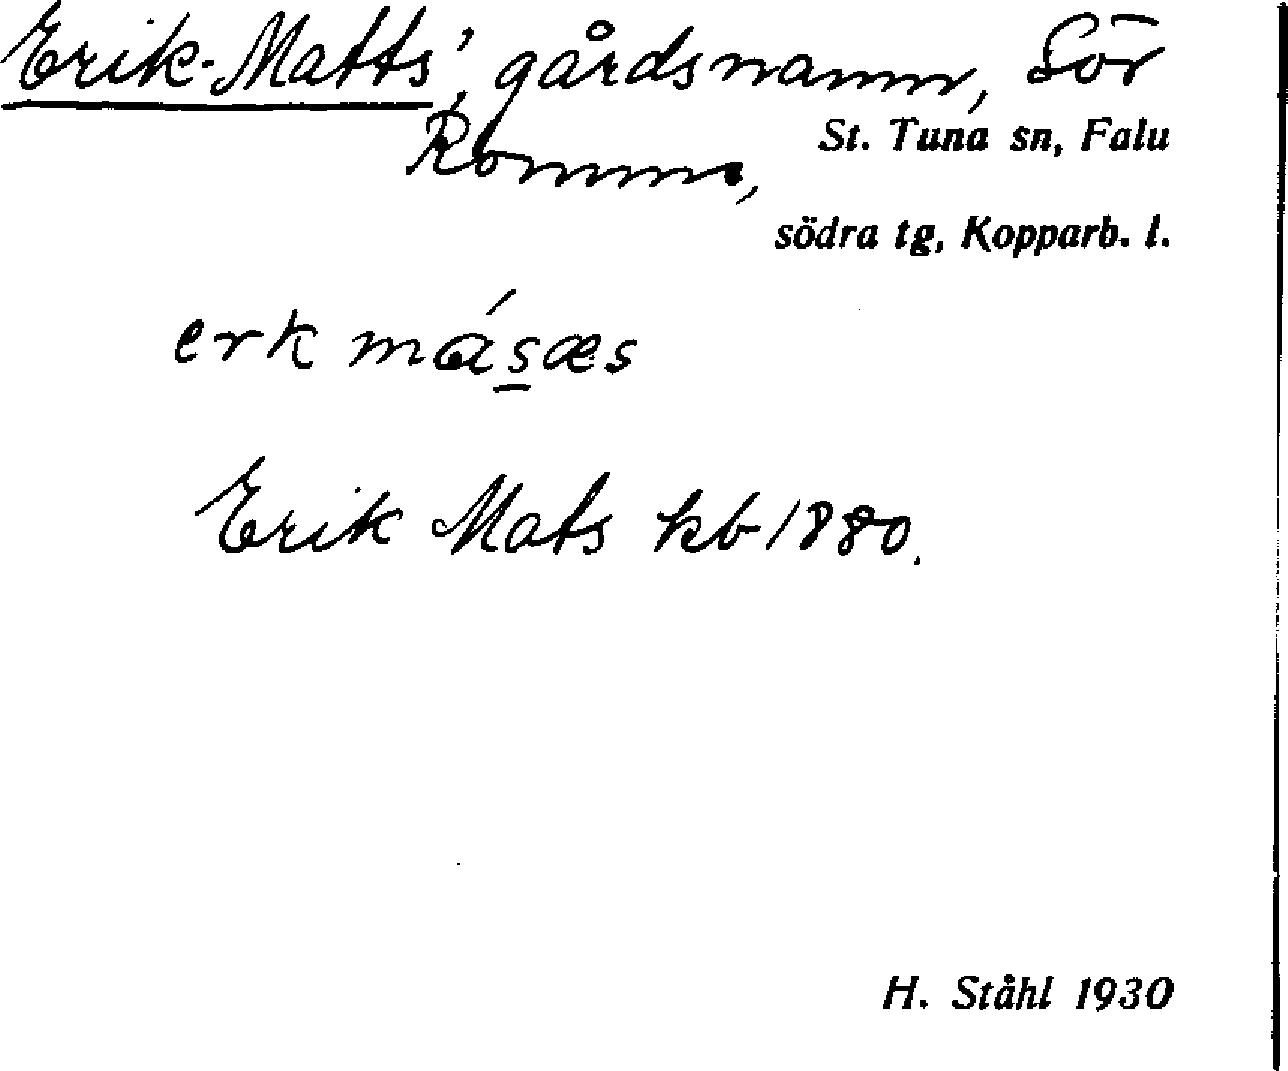 Erik-Matts', gårdsnamn, Sör
Romme,
St. Tuna sn, Falu
södra tg, Kopparb. l.
erk másæs
Erik Mats kb 1880.
H. Ståhl 1930